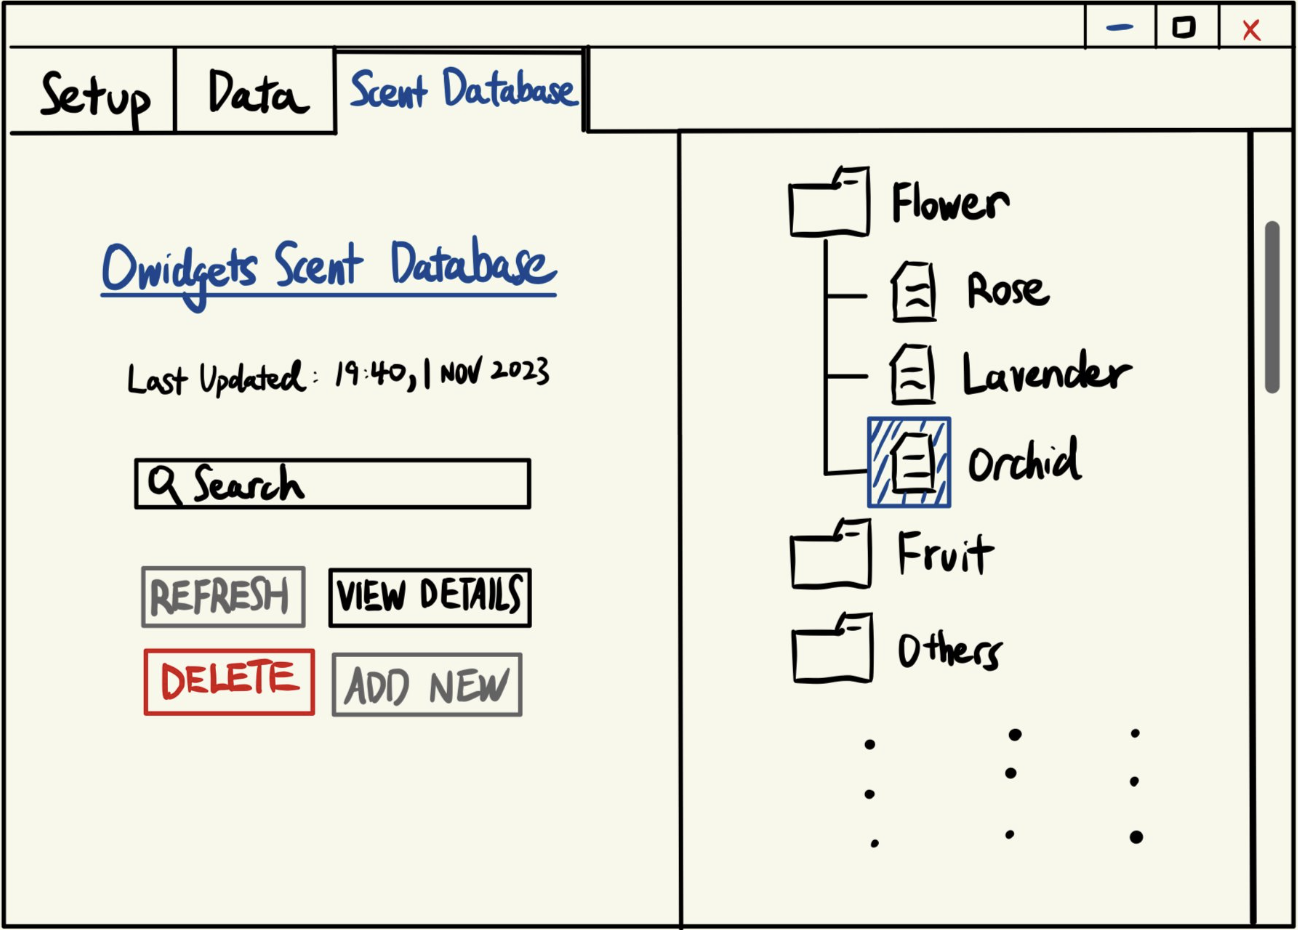 Setup
Data
Scent Database
Owidgets Scent Database
Last Updated: 19:40, 1 NOV 2023
Search
REFRESH
VIEW DETAILS
DELETE
ADD NEW
Flower
Rose
Lavender
Orchid
Fruit
Others